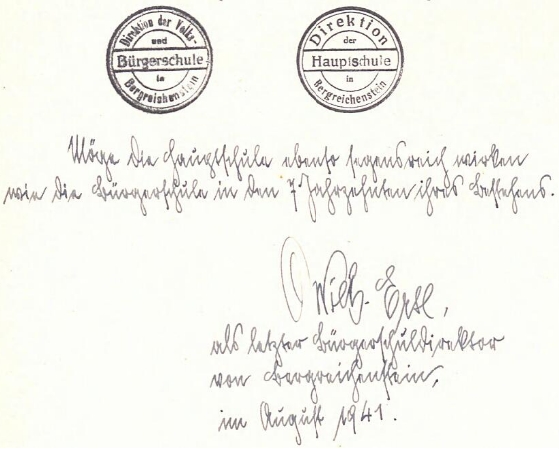 Direktion der Volks-
und
Bürgerschule
in
Bergreichenstein
Direktion
der
Hauptschule
in
Bergreichenstein
Möge die Hauptschule ebenso segensreich wirken
wie die Bürgerschule in den 7 Jahrzehnten ihres Bestehens.
Wilh. Ertl,
als letzter Bürgerschuldirektor
von Bergreichenstein,
im August 1941.